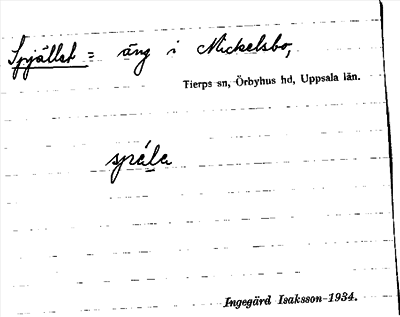 Spjället = äng i Mickelsbo,
Tierps sn, Örbyhus hd, Uppsala län.
spéla
Ingegärd Isaksson-1934.